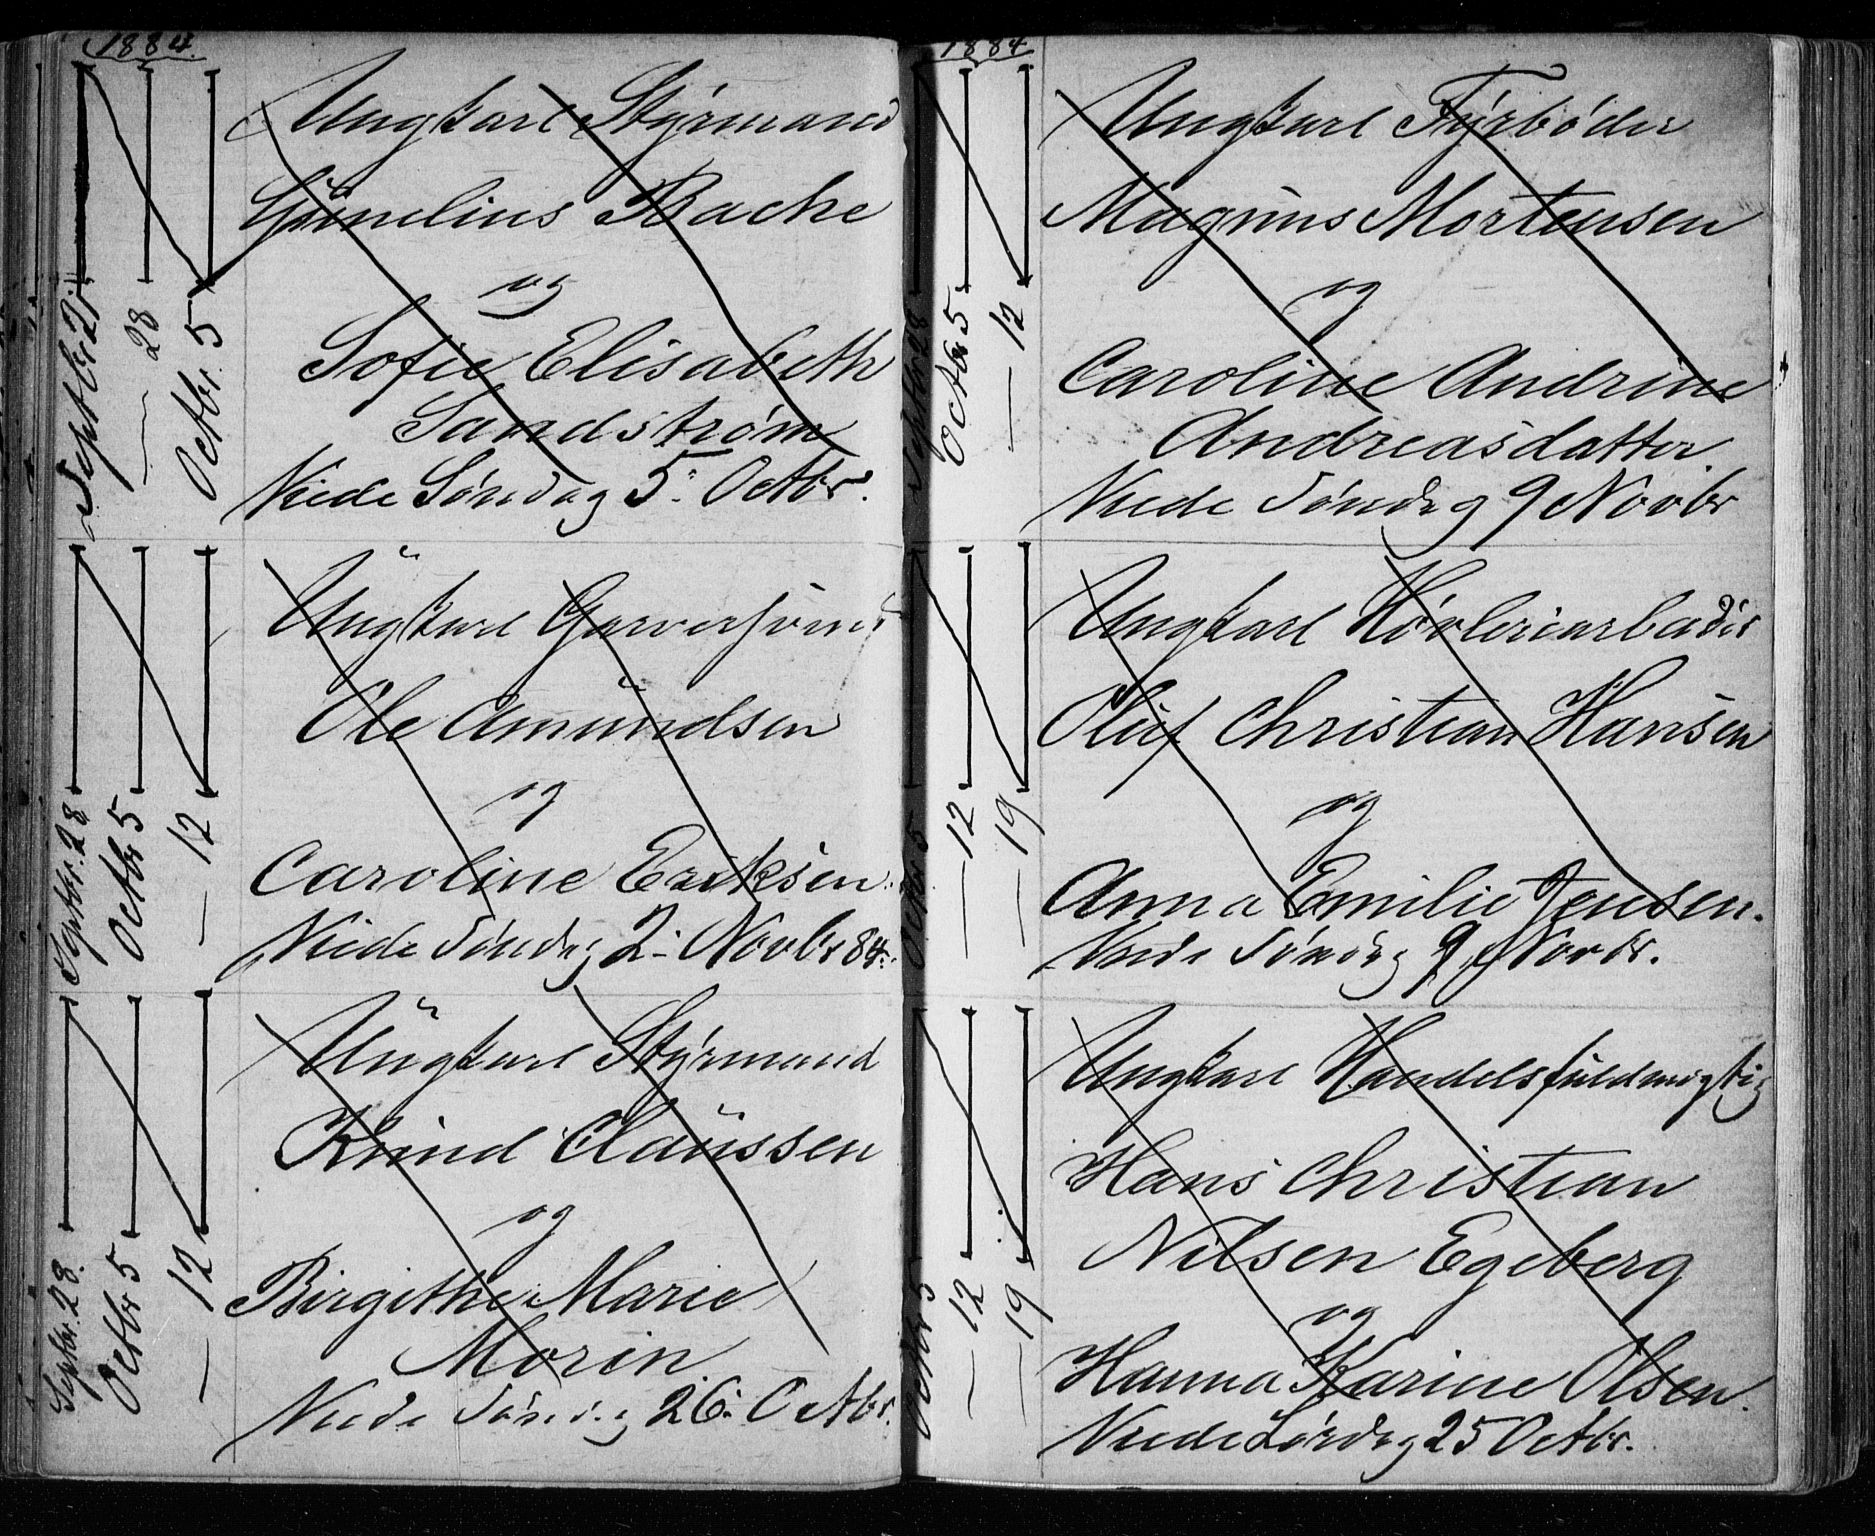 1884.
Septbr 21
— 28
Octbr. 5
Ungkarl Styrmand
Gunelius Bache
og
Sofie Elisabeth
Sandstrøm
Viede Søndag 5. Octbr.
Septbr. 28
Octbr 5
— 12
Ungkarl Garversvend
Ole Amundsen
og
Caroline Eriksen.
Viede Søndag 2. Novbr 84.
Septbr. 28.
Octbr 5
— 12
Ungkarl Styrmand
Knud Claussen
og
Birgithe Marie
Morin.
Viede Søndag 26. Octbr.
1884
Septbr 28
Octbr 5
— 12
Ungkarl Fyrbøder
Magnus Mortensen
og
Caroline Andrine
Andreasdatter.
Viede Søndag 9 Novbr
Octbr 5
— 12
— 19
Ungkarl Høvleriarbeder
Oluf Christian Hansen
og
Anna Emilie Jensen.
Viede Søndag 9 Novbr.
Octbr 5
— 12
— 19
Ungkarl Handelsfuldmægtig
Hans Christian
Nilsen Egeberg
og
Hanna Karine Olsen.
Viede Lørdag 25 Octbr.